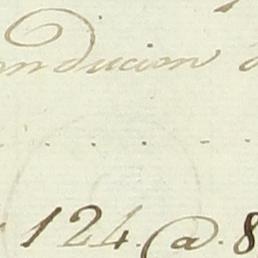 onducion
124 @ 8